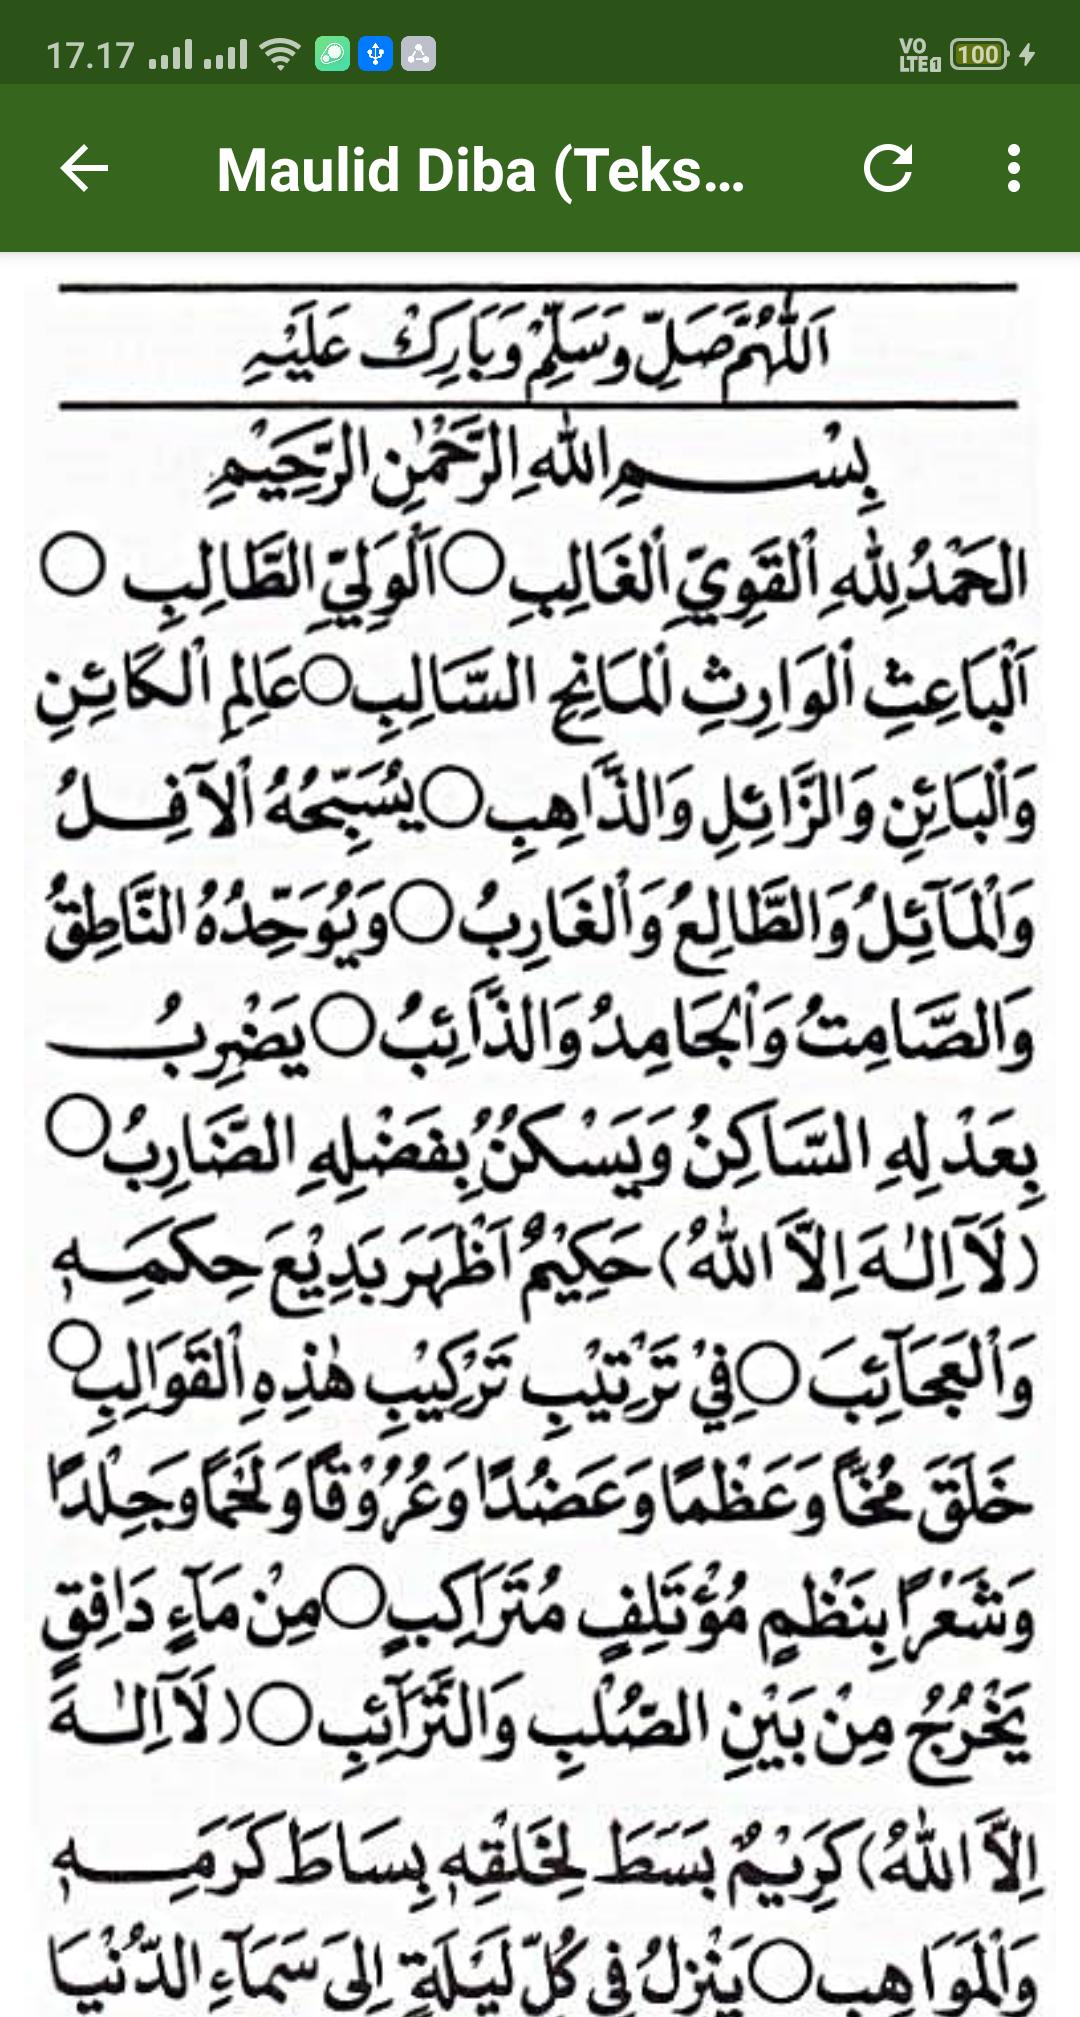 17.17
VO LTE1 100
Maulid Diba (Teks...
اَللّٰهُمَّ صَلِّ وَسَلِّمْ وَبَارِكْ عَلَيْهِ
بِسْمِ اللهِ الرَّحْمٰنِ الرَّحِيْمِ
الْحَمْدُ لِلّٰهِ الْقَوِيِّ الْغَالِبِ ○ اَلْوَلِيِّ الطَّالِبِ ○
اَلْبَاعِثِ الْوَارِثِ الْمَانِحِ السَّالِبِ ○ عَالِمِ الْكَائِنِ
وَالْبَائِنِ وَالزَّائِلِ وَالذَّاهِبِ ○ يُسَبِّحُهُ الْآفِلُ
وَالْمَآئِلُ وَالطَّالِعُ وَالْغَارِبُ ○ وَيُوَحِّدُهُ النَّاطِقُ
وَالصَّامِتُ وَالْجَامِدُ وَالذَّآئِبُ ○ يَضْرِبُ
بِعَدْلِهِ السَّاكِنُ وَيَسْكُنُ بِفَضْلِهِ الضَّارِبُ ○
(لَآ اِلٰهَ اِلَّا اللهُ) حَكِيْمٌ اَظْهَرَ بَدِيْعَ حِكَمِهٖ
وَالْعَجَآئِبَ ○ فِيْ تَرْتِيْبِ تَرْكِيْبِ هٰذِهِ الْقَوَالِبِ ○
خَلَقَ مُخًّا وَعَظْمًا وَعَضُدًا وَعُرُوْقًا وَلَحْمًا وَجِلْدًا
وَشَعْرًا بِنَظْمٍ مُؤْتَلِفٍ مُتَرَاكِبٍ ○ مِنْ مَآءٍ دَافِقٍ
يَخْرُجُ مِنْ بَيْنِ الصُّلْبِ وَالتَّرَآئِبِ ○ (لَآ اِلٰهَ
اِلَّا اللهُ) كَرِيْمٌ بَسَطَ لِخَلْقِهٖ بِسَاطَ كَرَمِهٖ
وَالْمَوَاهِبِ ○ يَنْزِلُ فِى كُلِّ لَيْلَةٍ اِلَى سَمَآءِ الدُّنْيَا